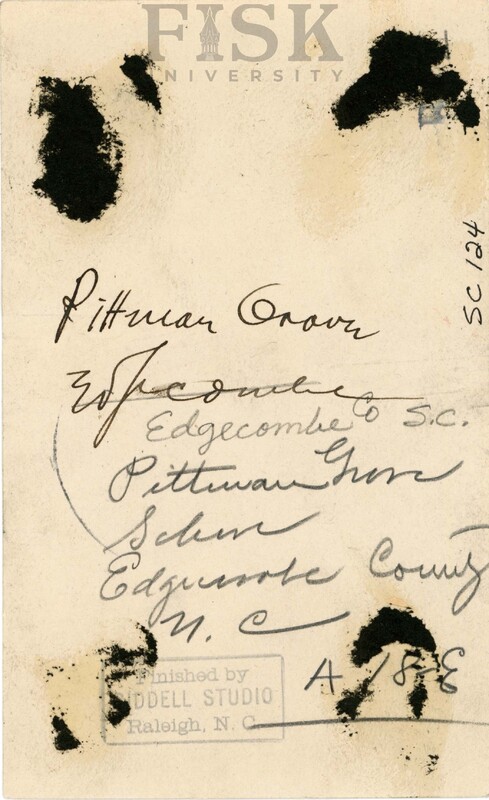 FISK
UNIVERSITY
SC 124
Pittman Grove
Edgecombe
Edgecombe Co S.C.
Pittman Grove
School
Edgecombe County
N. C
A 18-E
Finished by
SIDDELL STUDIO
Raleigh, N. C.